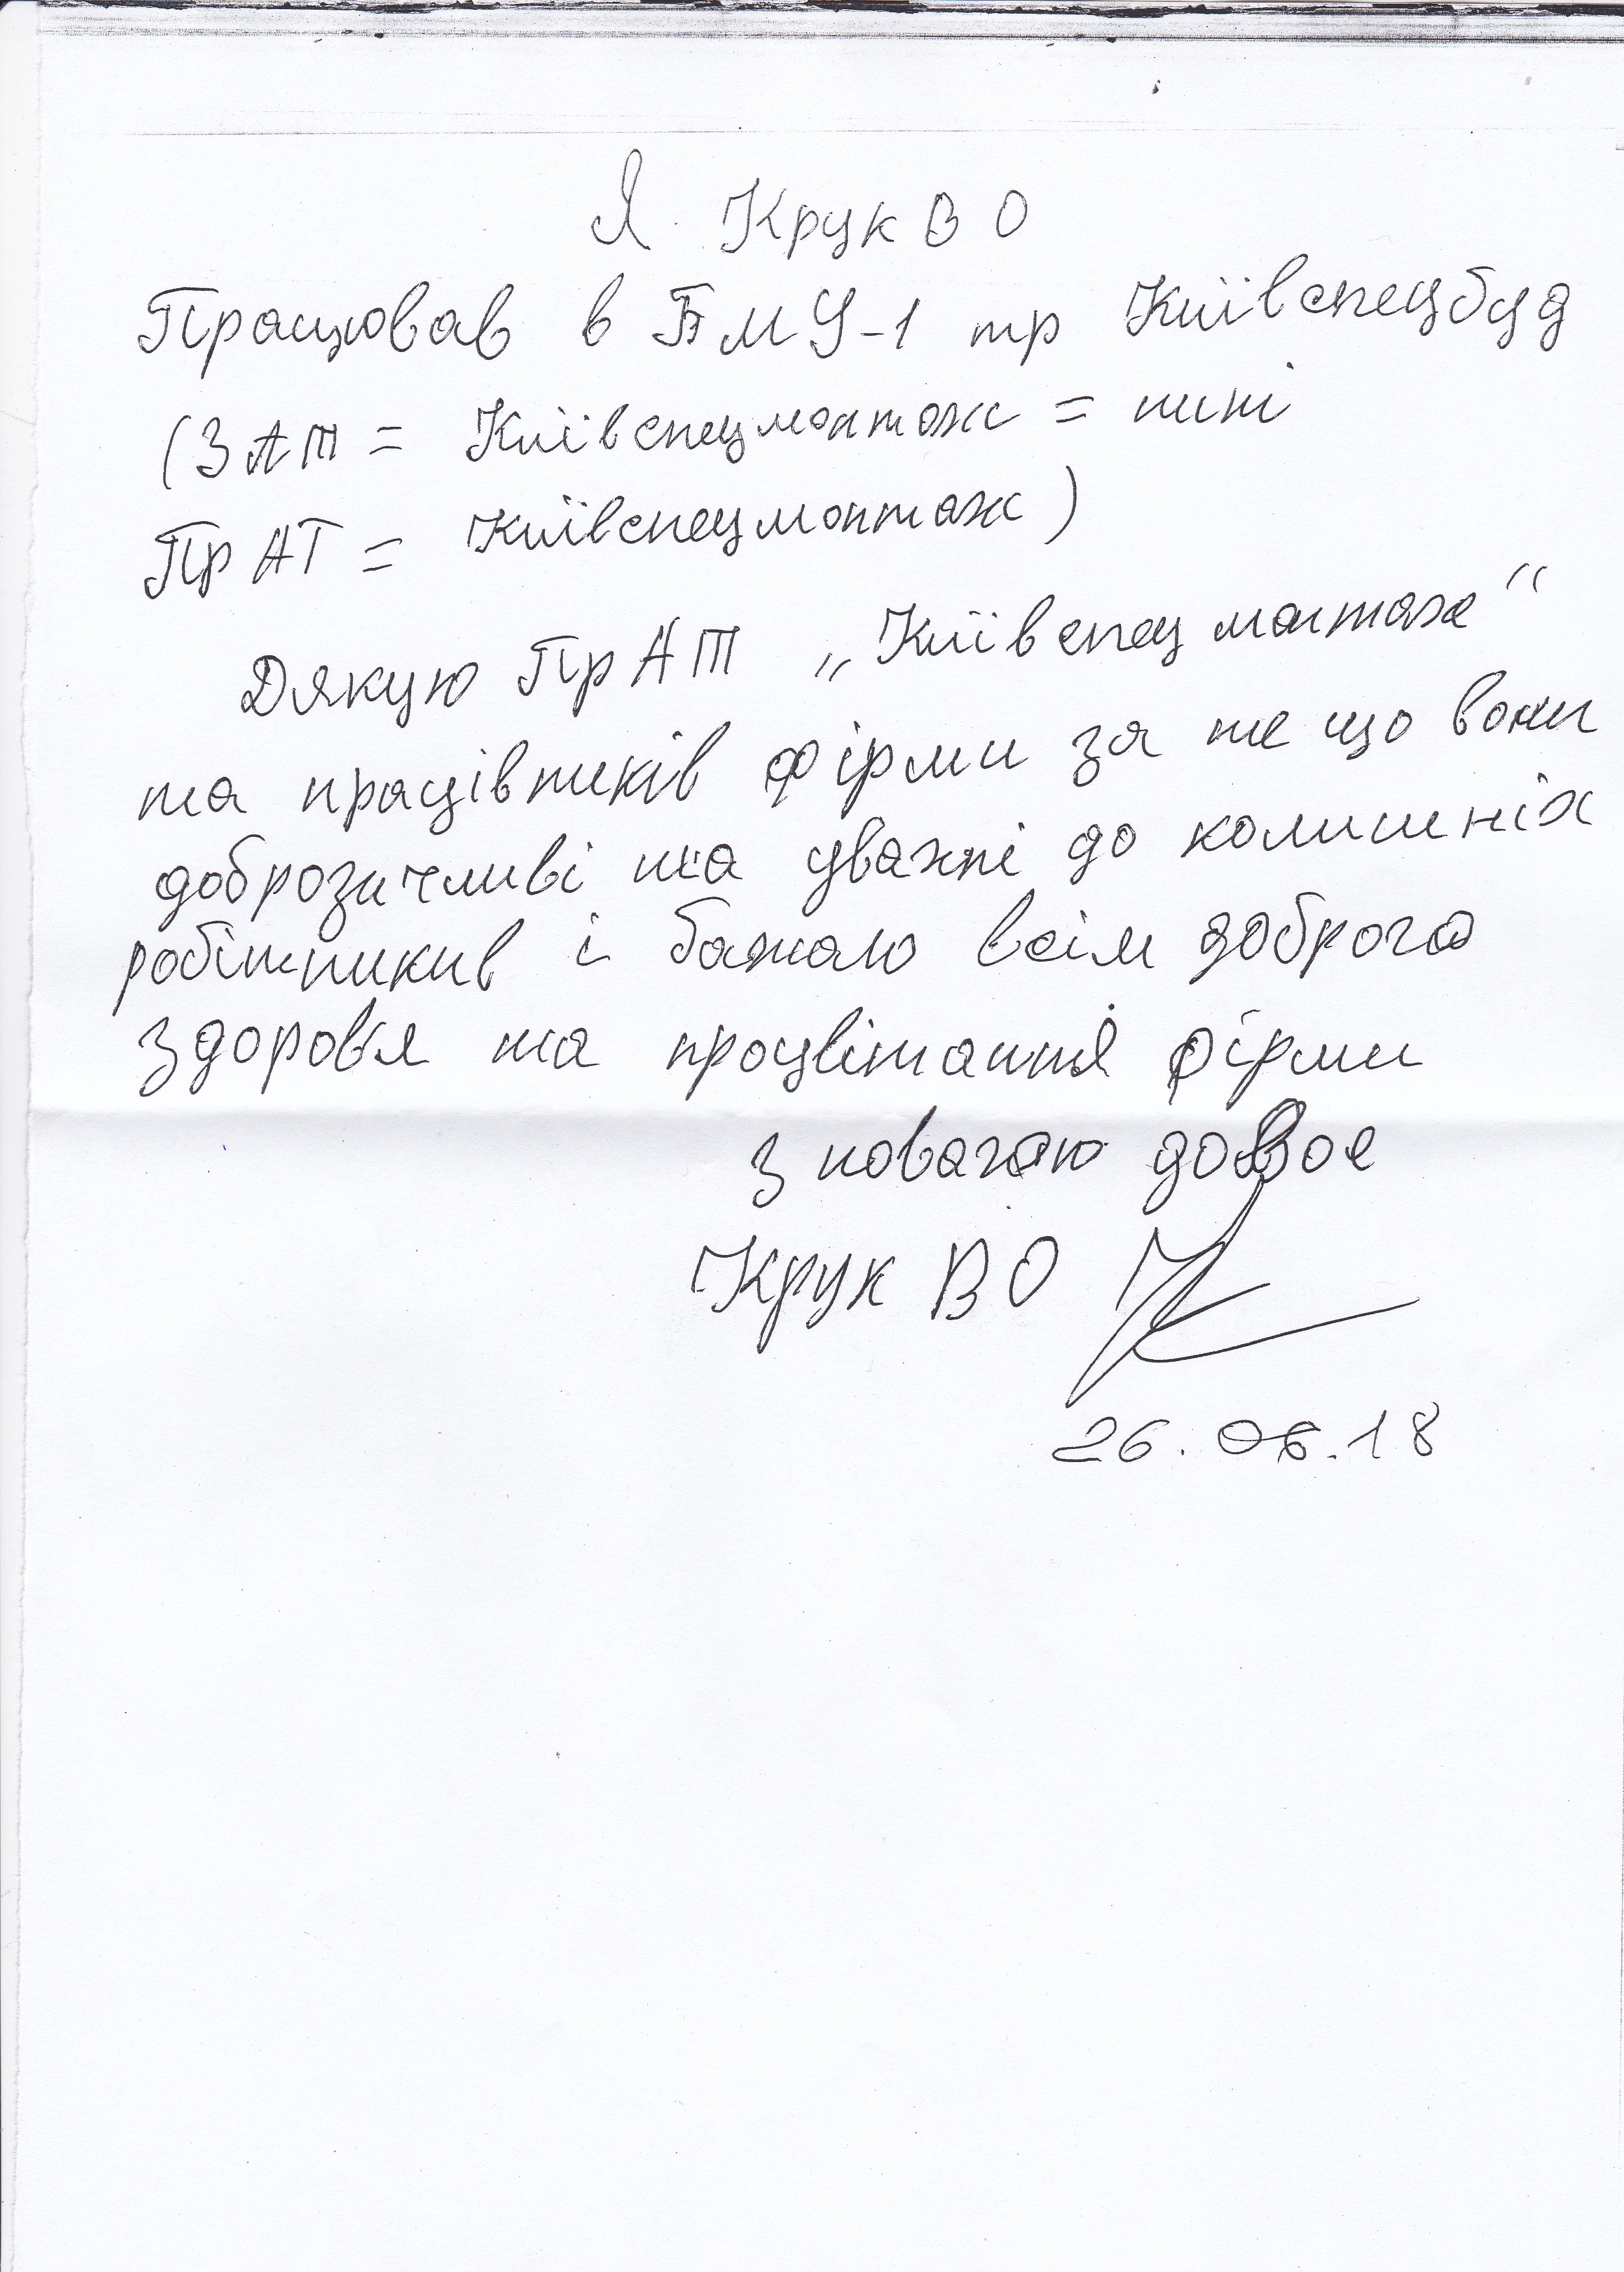 Я. Крук В О
Працював в БМУ-1 тр Київспецбуд
(ЗАТ = Київспецмонтаж = нині
ПрАТ = Київспецмонтаж)
Дякую ПрАТ „Київспецмонтаж“
та працівників фірми за те що вони
доброзичливі та уважні до колишніх
робітникив і бажаю всім доброго
здоровя та процвітання фірми
з повагою до Вас
Крук В О
26.06.18